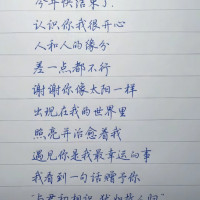 今年快结束了.
认识你我很开心
人和人的缘分
差一点都不行
谢谢你像太阳一样
出现在我的世界里
照亮并治愈着我
遇见你是我最幸运的事
我看到一句话赠予你
"与君初相识,犹如故人归"